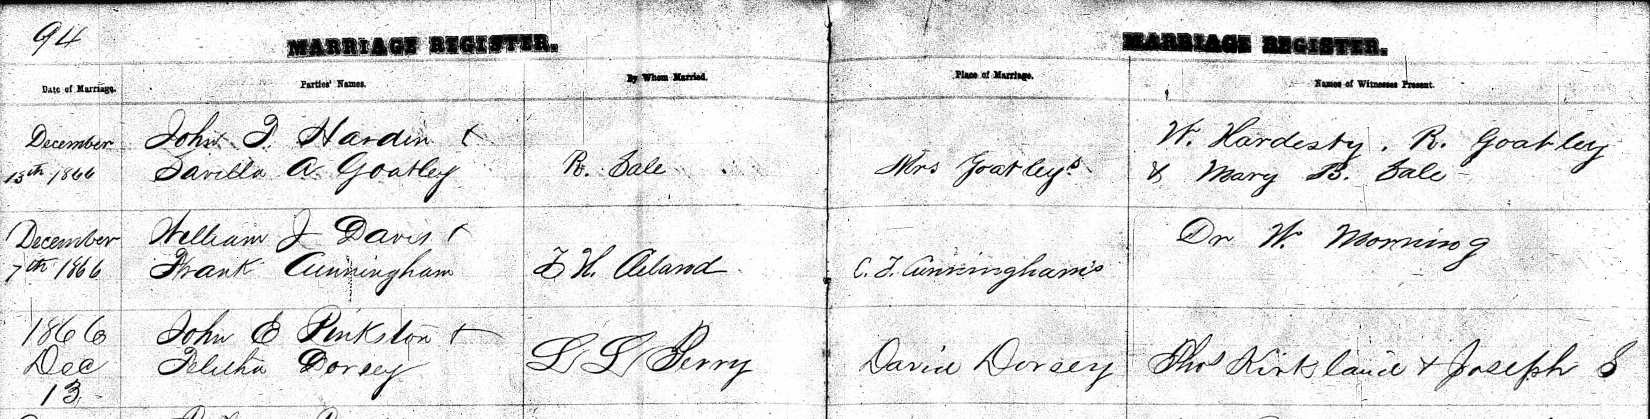 94
MARRIAGE REGISTER. MARRIAGE REGISTER.
Date of Marriage. Parties' Names. By Whom Married. Place of Marriage. Names of Witnesses Present.
December John T. Hardin & W. Hardesty. R. Goatley
13th 1866 Savilla A. Goatley R. Sale Mrs Goatley's & Mary B. Sale
December William J Davis & Dr W. Morning
7th 1866 Frank Cunningham C. T. Cunningham's
1866 John E Pinkston +
Dec Dorsey L L Perry David Dorsey Thos Kirkland & Joseph S
13